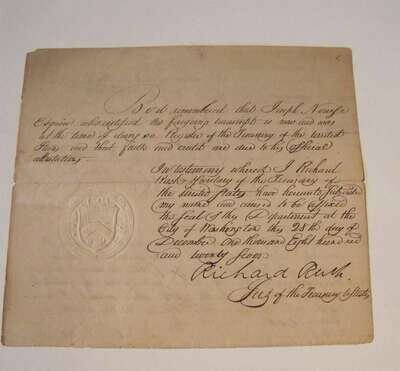 Be it remembered that Joseph Nourse
Esquire who certified the foregoing transcript is now and was
at the time of doing so Register of the Treasury of the United
States and that faith and credit are due to his official
attestations
In testimony whereof I Richard
Rush Secretary of the Treasury of
the United States have hereunto subscribed
my name and caused to be affixed
the seal of this Department at the
City of Washington this 28th day of
December One thousand Eight hundred
and twenty seven
Richard Rush
Secy of the Treasury U States